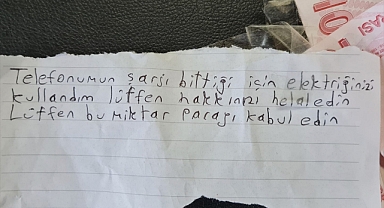 Telefonumun sarjı bittiği için elektriğinizi
kullandım lütfen hakkınızı helal edin
Lütfen bu miktar parayı kabul edin